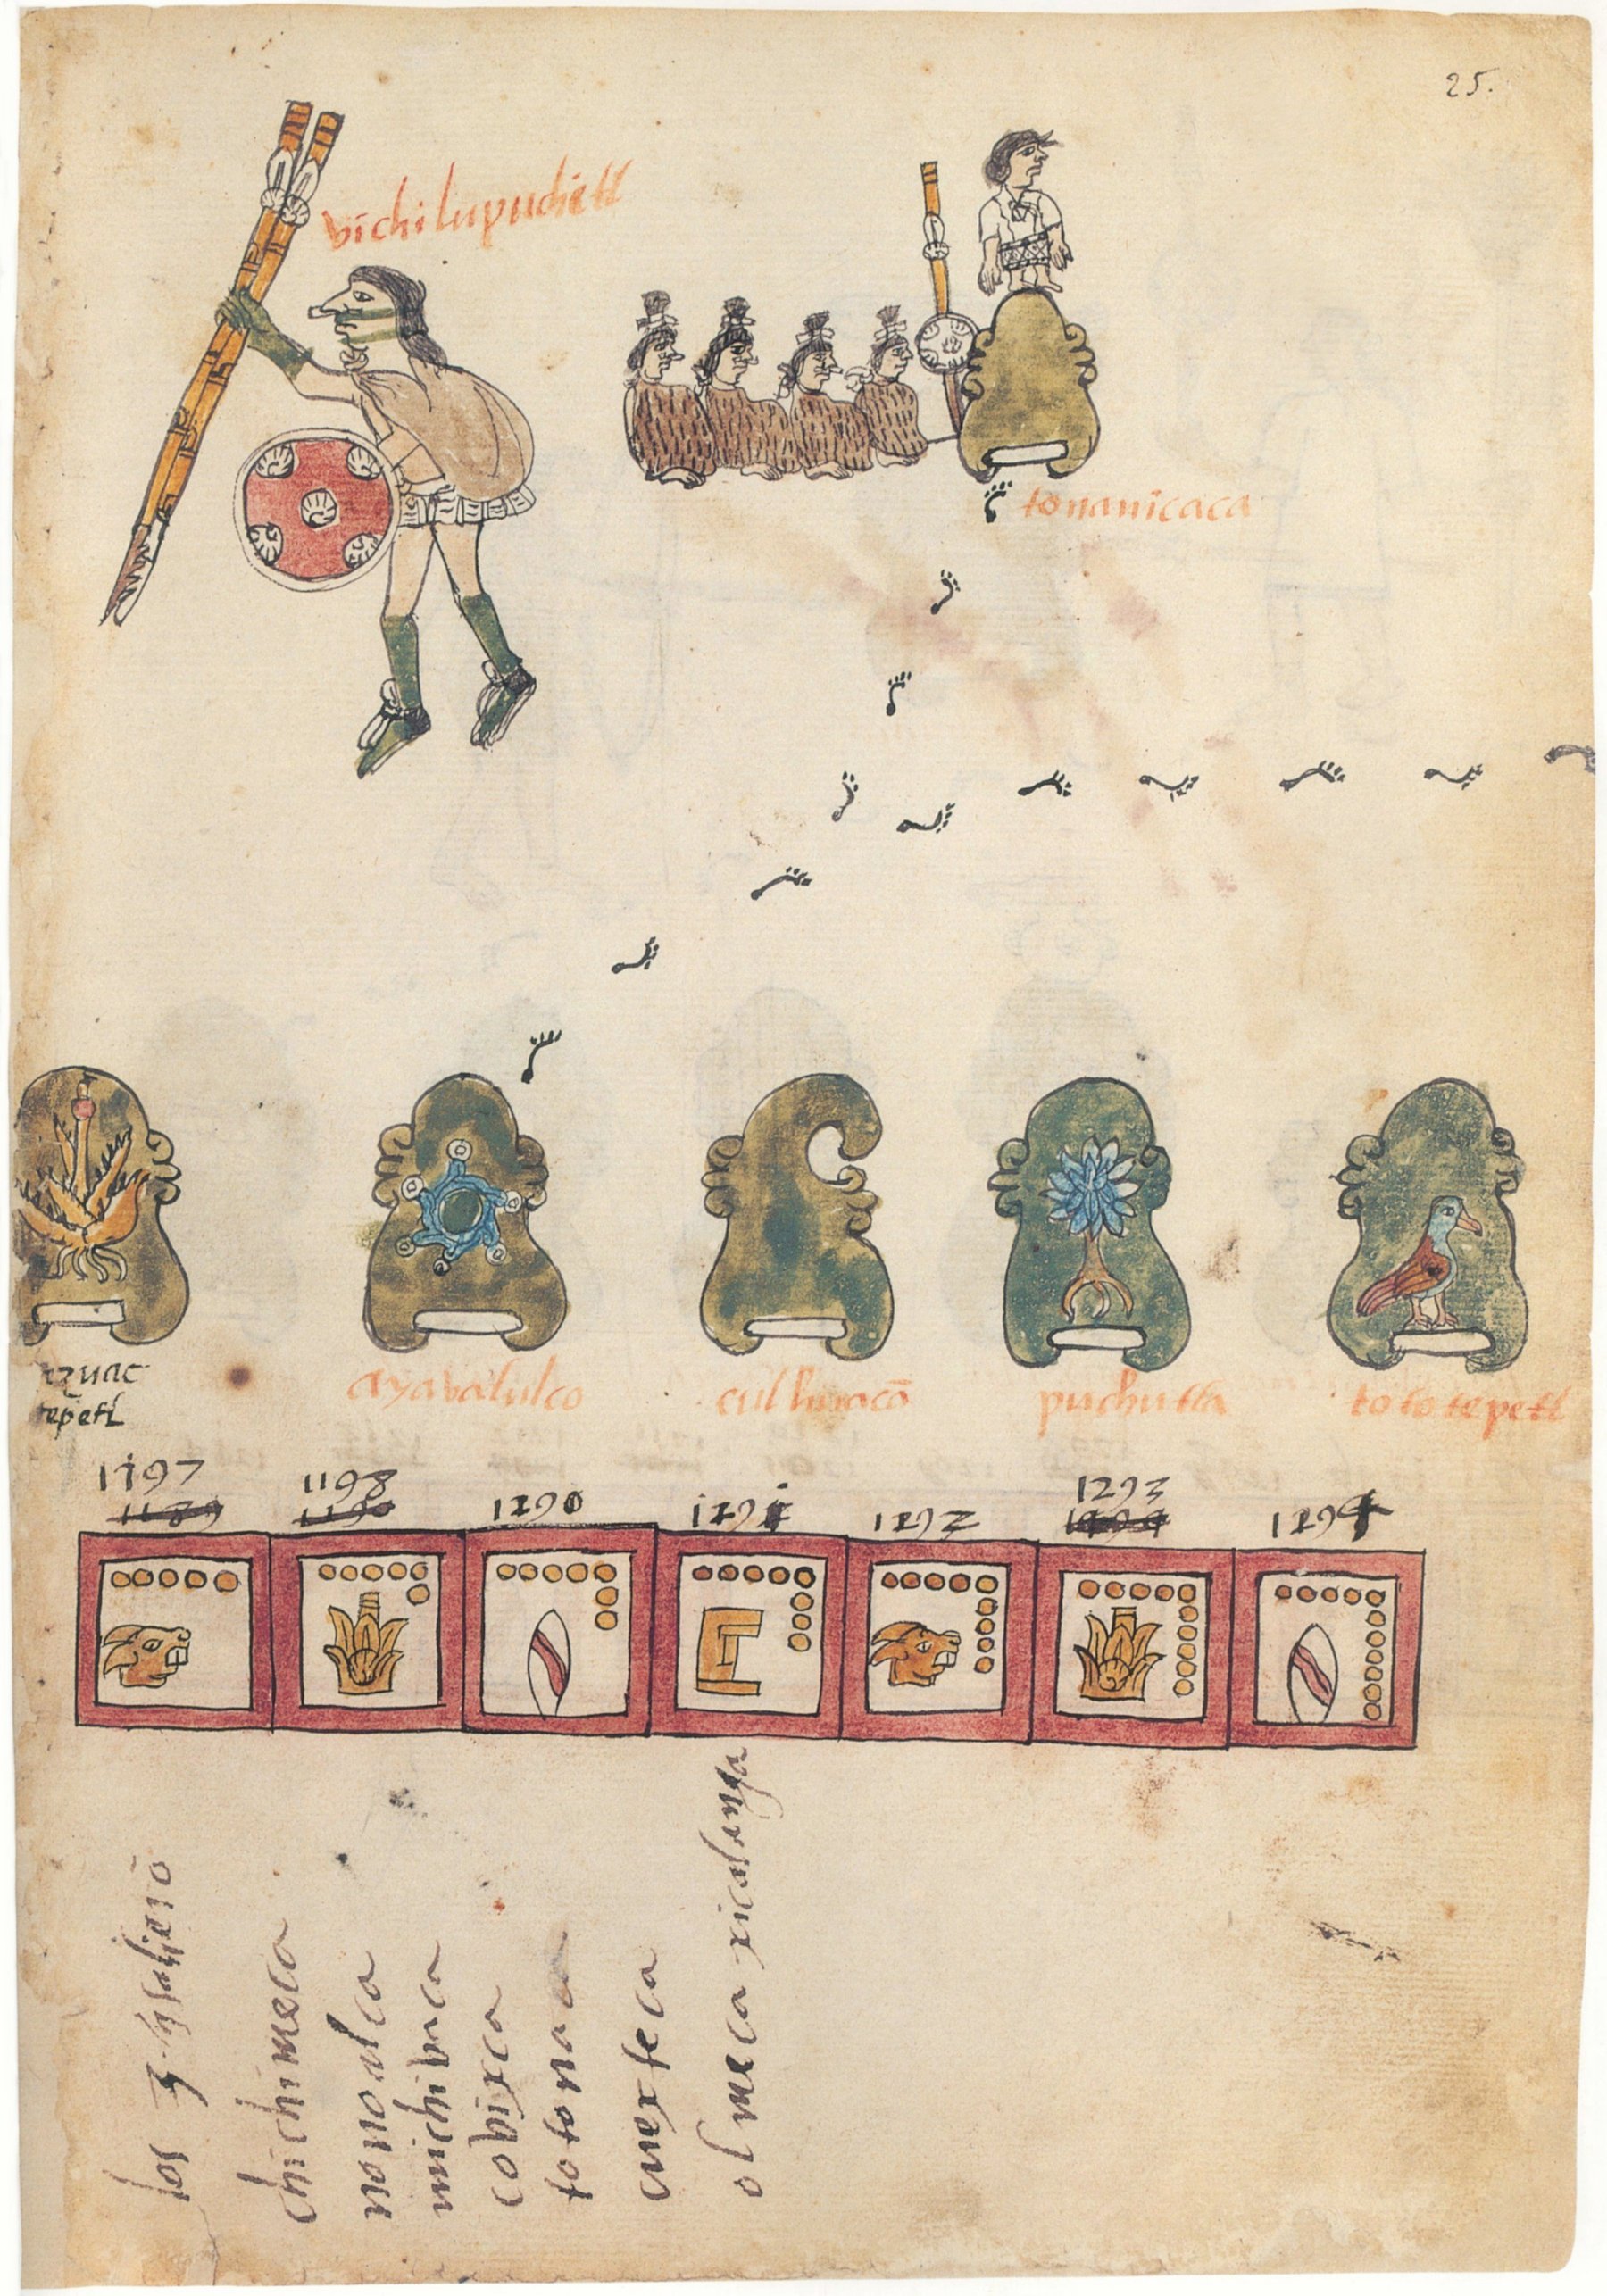 25.
vichilupuchitl
tonanicaca
azuac
tepetl
ayavalulco
culhuacā
puchutla
tototepetl
1197
1198
1290
1291
1292
1293
1294
los
chichimeca
nonoalca
michivaca
covixca
totonaca
cuexteca
olmeca xicalanga